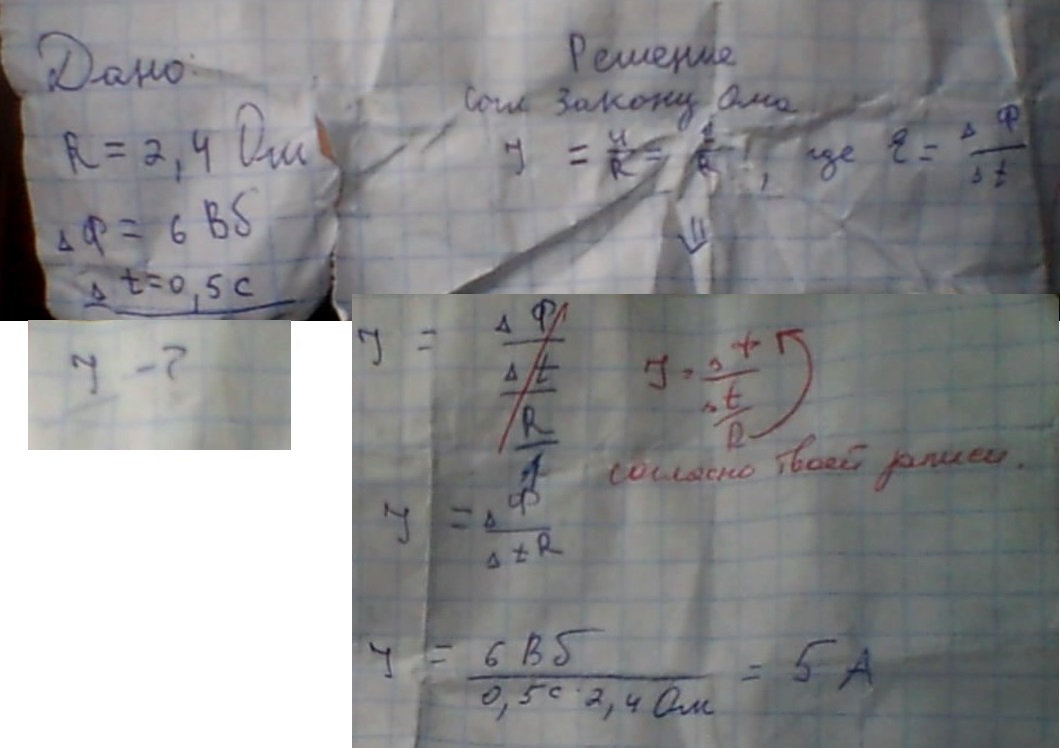 Дано:
R = 2,4 Ом
Δ Ф = 6 Вб
Δ t = 0,5 с
J - ?
Решение
Согл закону Ома
J = = , где ℰ = Δ Ф / Δ t
⇓
J = Δ Ф / Δ t / R / 1
J = Δ Ф / Δ t / R
согласно твоей записи.
J = Δ Ф / Δ t R
J = 6 Вб / 0,5 с · 2,4 Ом = 5 А